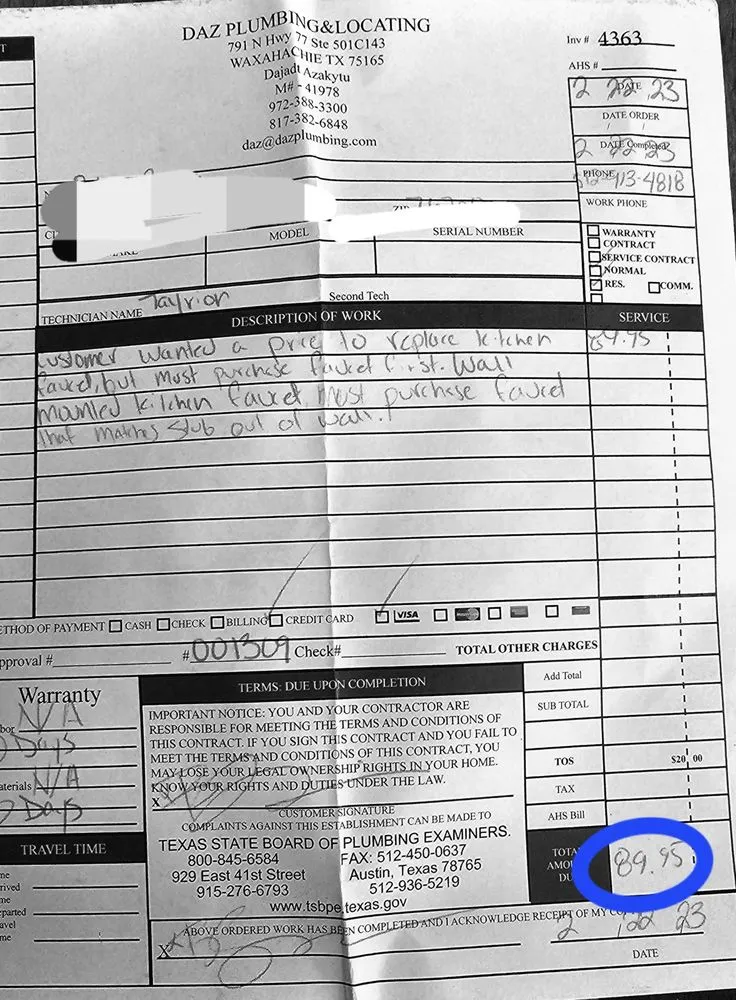 DAZ PLUMBING&LOCATING
791 N Hwy 77 Ste 501C143
WAXAHACHIE TX 75165
Dajadt Azakytu
M# - 41978
972-388-3300
817-382-6848
daz@dazplumbing.com
Inv # 4363
AHS #
DATE
2 22 23
DATE ORDER
/ /
DATE Completed?
2 22 23
PHONE
-4818
WORK PHONE
MODEL
SERIAL NUMBER
WARRANTY
CONTRACT
SERVICE CONTRACT
NORMAL
RES. COMM.
TECHNICIAN NAME Tayrion Second Tech
DESCRIPTION OF WORK SERVICE
customer wanted a price to replace kitchen
faucet, but must purchase faucet first. Wall
mounted kitchen faucet. Must purchase faucet
that matches stub out of wall.
METHOD OF PAYMENT CASH CHECK BILLING CREDIT CARD VISA
pproval # #001309 Check# TOTAL OTHER CHARGES
Warranty
bor N/A
Days
aterials N/A
Days
TRAVEL TIME
me
rived
me
eparted
avel
me
TERMS: DUE UPON COMPLETION
IMPORTANT NOTICE: YOU AND YOUR CONTRACTOR ARE
RESPONSIBLE FOR MEETING THE TERMS AND CONDITIONS OF
THIS CONTRACT. IF YOU SIGN THIS CONTRACT AND YOU FAIL TO
MEET THE TERMS AND CONDITIONS OF THIS CONTRACT, YOU
MAY LOSE YOUR LEGAL OWNERSHIP RIGHTS IN YOUR HOME.
KNOW YOUR RIGHTS AND DUTIES UNDER THE LAW.
X
CUSTOMER SIGNATURE
COMPLAINTS AGAINST THIS ESTABLISHMENT CAN BE MADE TO
TEXAS STATE BOARD OF PLUMBING EXAMINERS.
800-845-6584 FAX: 512-450-0637
929 East 41st Street Austin, Texas 78765
915-276-6793 512-936-5219
www.tsbpe.texas.gov
Add Total
SUB TOTAL
TOS $20 00
TAX
AHS Bill
TOTAL
AMOUNT
DUE
89.95
ABOVE ORDERED WORK HAS BEEN COMPLETED AND I ACKNOWLEDGE RECEIPT OF MY
X
2 22 23
DATE